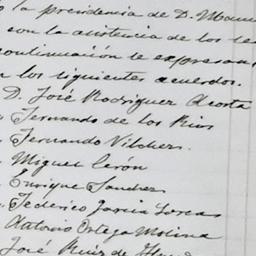 la presidencia de D. Manu
con la asistencia de los se
continuación se expresan
los siguientes acuerdos.
D. José Rodriguez Acosta
" Fernando de los Rios
" Fernando Vilchez
" Miguel Cerón
" Enrique Sanchez
" Federico García Lorca
" Antonio Ortega Molina
José Ruiz de